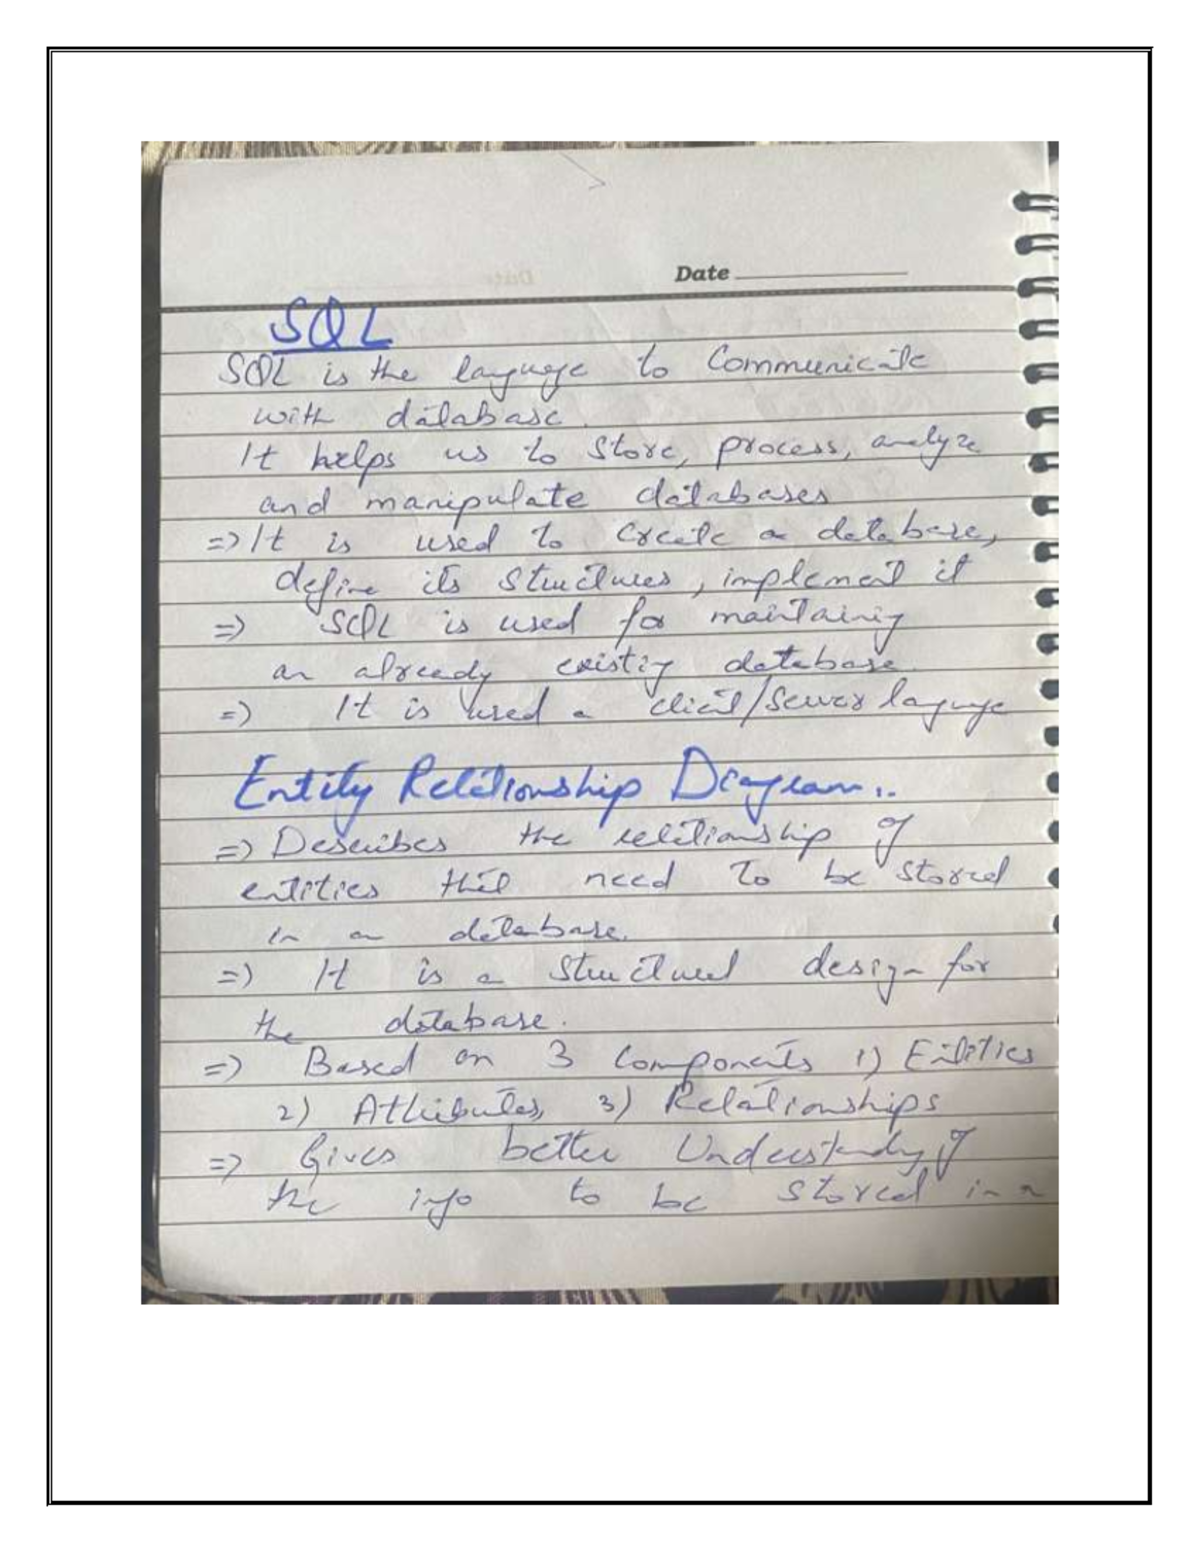 Date
SQL
SQL is the language to Communicate
with database.
It helps us to store, process, analyze
and manipulate databases
=> It is used to create a database,
define its structures, implement it
=> SQL is used for maintaining
an already existing database.
=> It is used a client/server language
Entity Relationship Diagram..
=> Describes the relationship of
entities that need to be stored
in a database.
=> It is a structural design for
the database.
=> Based on 3 components 1) Entities
2) Attributes, 3) Relationships
=> Gives better Understanding of
the info to be stored in a